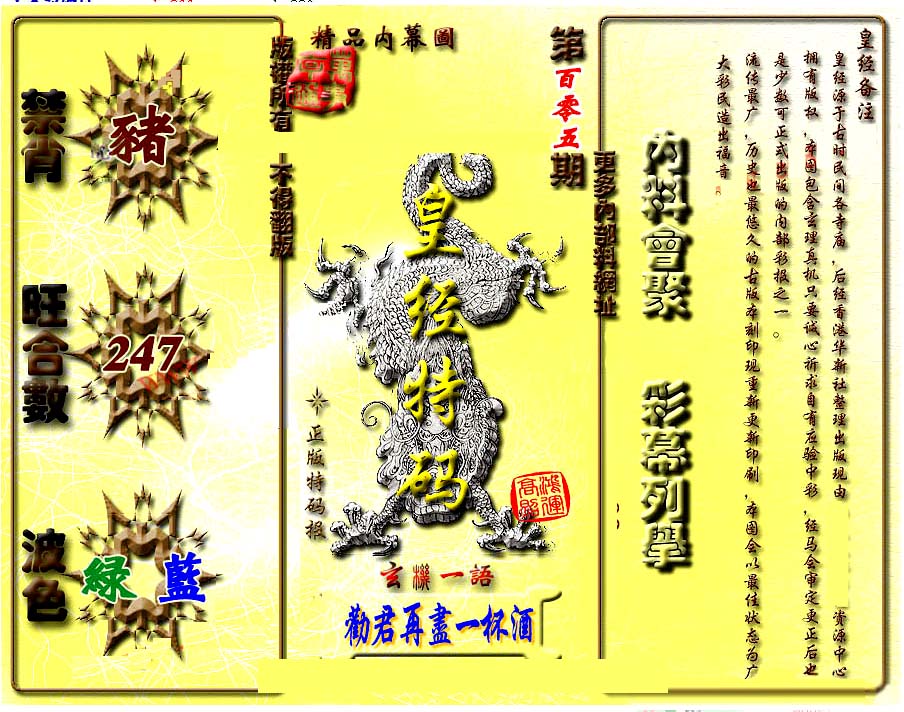 精品内幕圖
第百零五期
版權所有
不得翻版
更多内部料網址
禁肖
豬
旺合數
247
波色
綠 藍
皇经特码
正版特码报
鴻運高照
玄機一語
勸君再盡一杯酒
内料會聚
彩幕列舉
皇经备注
皇经源于古时民间各寺庙，后经香港华新社整理出版现由 资源中心
拥有版权，本图包含玄理真机只要诚心祈求自有应验中彩，经马会审定更正后也
是少数可正式出版的内部彩报之一。
流传最广，历史也最悠久的古版本刻印现重新更新印刷，本图会以最佳状态为广
大彩民造出福音